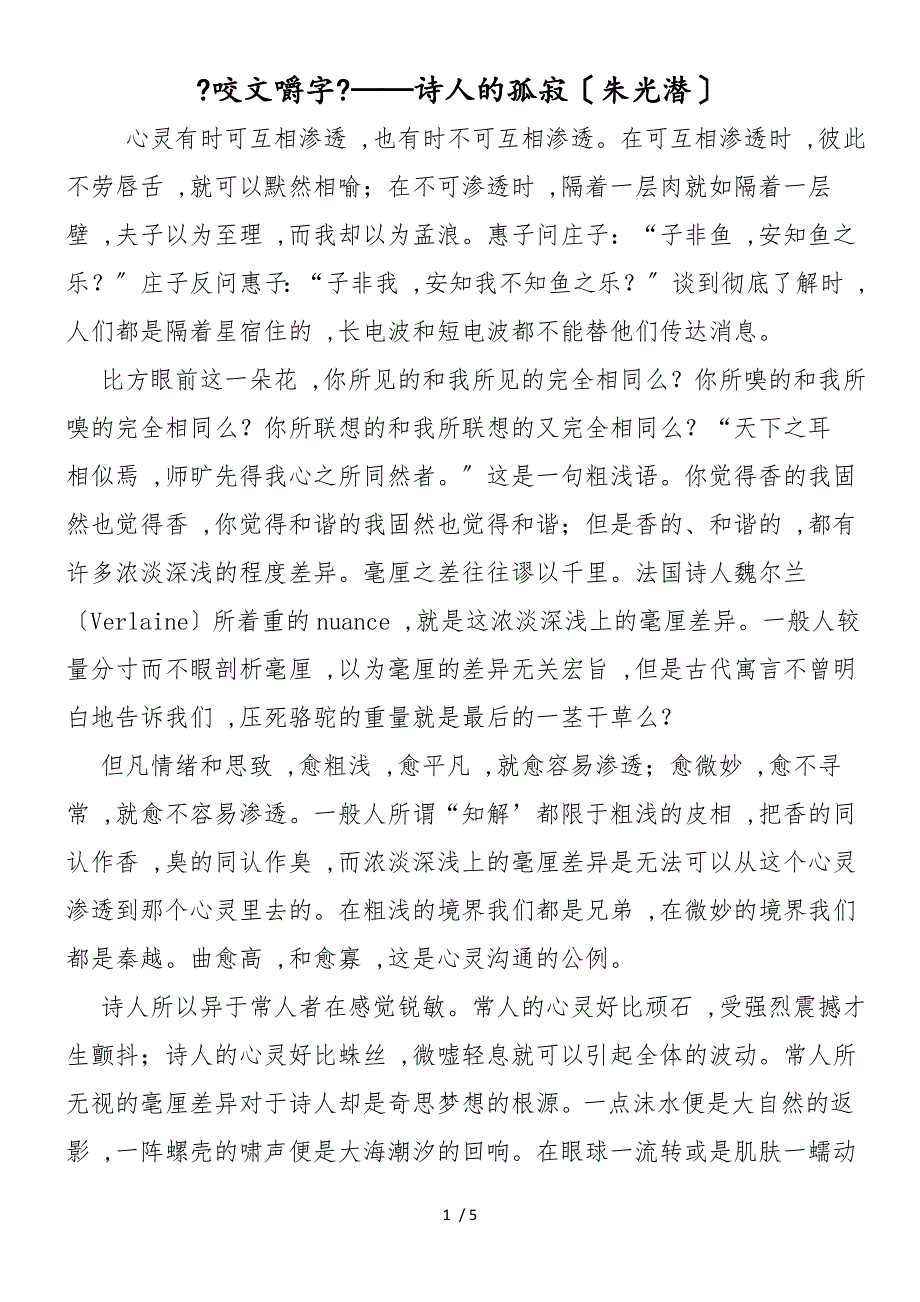 ?咬文嚼字?——诗人的孤寂〔朱光潜〕
心灵有时可互相渗透 ,也有时不可互相渗透。在可互相渗透时 ,彼此
不劳唇舌 ,就可以默然相喻；在不可渗透时 ,隔着一层肉就如隔着一层
壁 ,夫子以为至理 ,而我却以为孟浪。惠子问庄子：“子非鱼 ,安知鱼之
乐？〞庄子反问惠子：“子非我 ,安知我不知鱼之乐？〞谈到彻底了解时 ,
人们都是隔着星宿住的 ,长电波和短电波都不能替他们传达消息。
比方眼前这一朵花 ,你所见的和我所见的完全相同么？你所嗅的和我所
嗅的完全相同么？你所联想的和我所联想的又完全相同么？“天下之耳
相似焉 ,师旷先得我心之所同然者。〞这是一句粗浅语。你觉得香的我固
然也觉得香 ,你觉得和谐的我固然也觉得和谐；但是香的、和谐的 ,都有
许多浓淡深浅的程度差异。毫厘之差往往谬以千里。法国诗人魏尔兰
〔Verlaine〕所着重的nuance ,就是这浓淡深浅上的毫厘差异。一般人较
量分寸而不暇剖析毫厘 ,以为毫厘的差异无关宏旨 ,但是古代寓言不曾明
白地告诉我们 ,压死骆驼的重量就是最后的一茎干草么？
但凡情绪和思致 ,愈粗浅 ,愈平凡 ,就愈容易渗透；愈微妙 ,愈不寻
常 ,就愈不容易渗透。一般人所谓“知解’都限于粗浅的皮相 ,把香的同
认作香 ,臭的同认作臭 ,而浓淡深浅上的毫厘差异是无法可以从这个心灵
渗透到那个心灵里去的。在粗浅的境界我们都是兄弟 ,在微妙的境界我们
都是秦越。曲愈高 ,和愈寡 ,这是心灵沟通的公例。
诗人所以异于常人者在感觉锐敏。常人的心灵好比顽石 ,受强烈震撼才
生颤抖；诗人的心灵好比蛛丝 ,微嘘轻息就可以引起全体的波动。常人所
无视的毫厘差异对于诗人却是奇思梦想的根源。一点沫水便是大自然的返
影 ,一阵螺壳的啸声便是大海潮汐的回响。在眼球一流转或是肌肤一蠕动
1 / 5